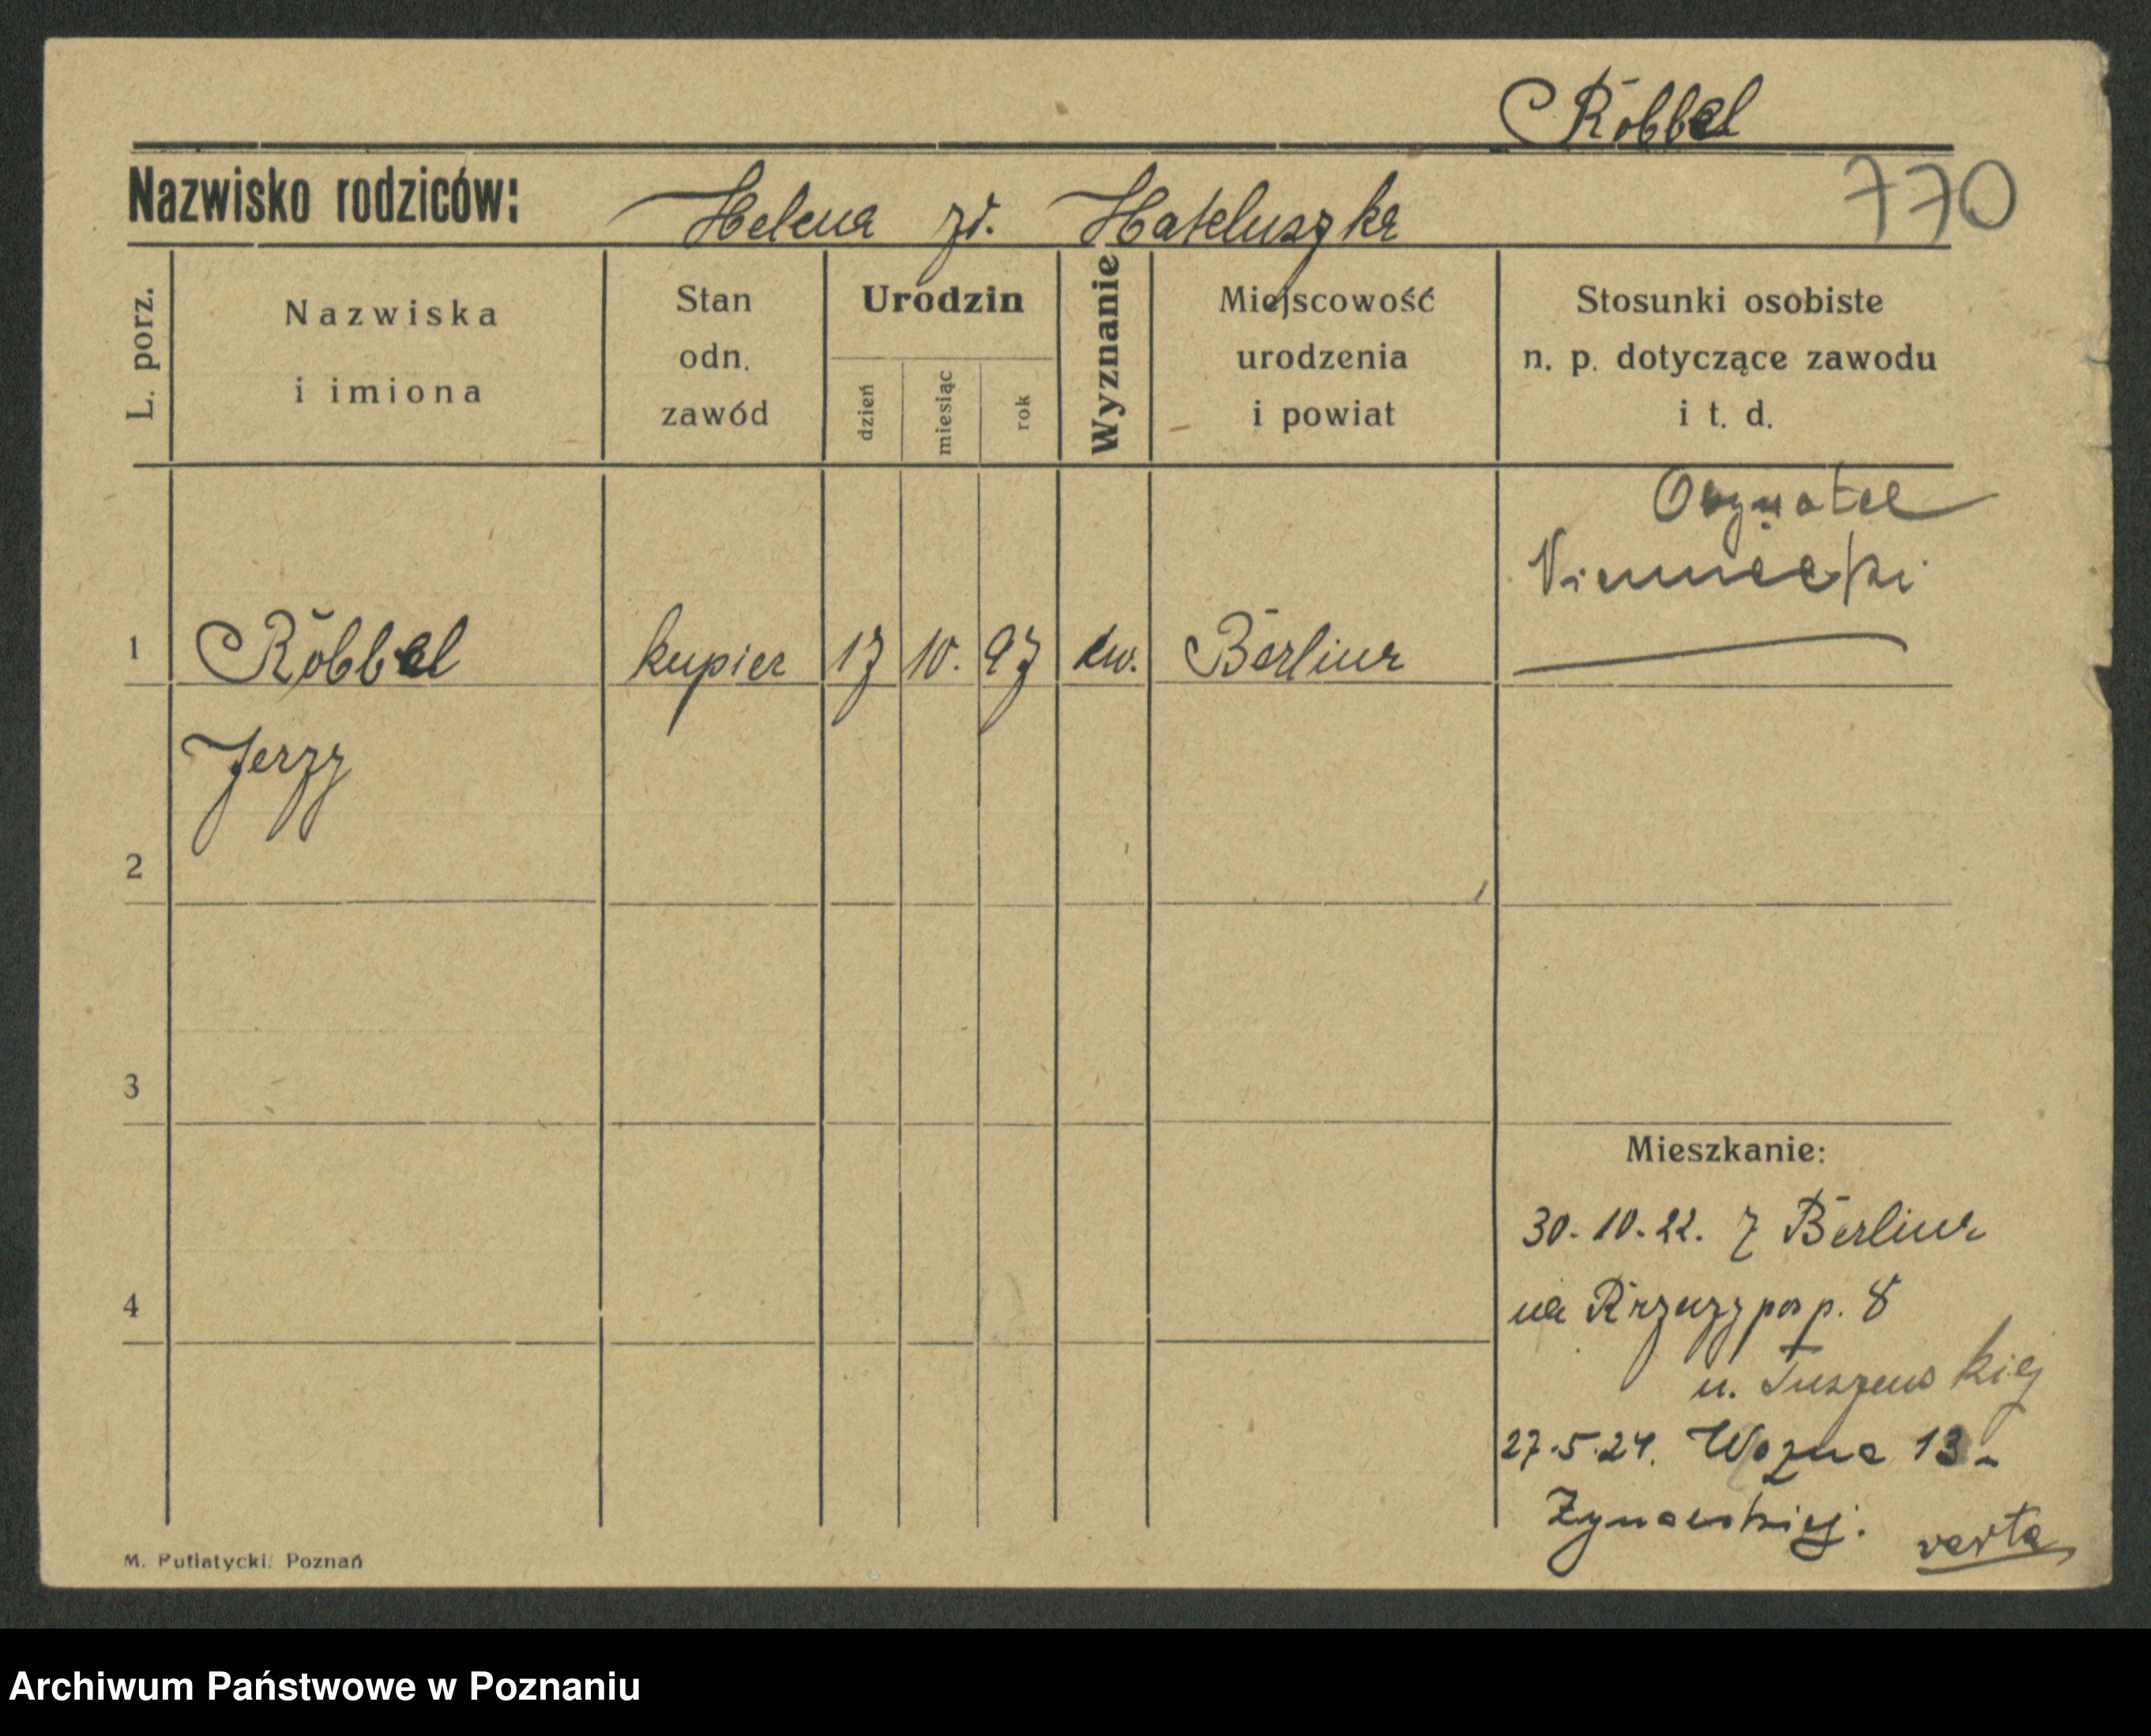 Röbbel
Nazwisko rodziców: Helena zd. Hateluszka
770
L. porz.
Nazwiska
i imiona
Stan
odn.
zawód
Urodzin
dzień
miesiąc
rok
Wyznanie
Miejscowość
urodzenia
i powiat
Stosunki osobiste
n. p. dotyczące zawodu
i t. d.
Obywatel
Niemiecki
1 Röbbel kupiec 17 10. 97 ew. Berlina
Jerzy
2
3
4
Mieszkanie:
30.10.22. z Berlina
na Rzeczyposp. 8
u. Tuszewskiej
27.5.24. Woźna 13
verte
M. Putiatycki. Poznań
Archiwum Państwowe w Poznaniu